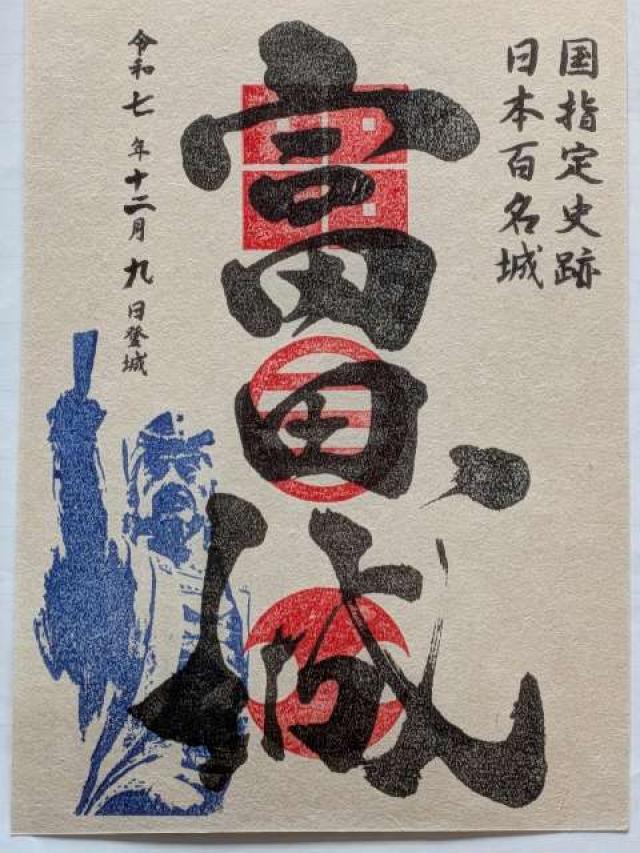 国指定史跡
日本百名城
富田城
令和七年十二月九日登城